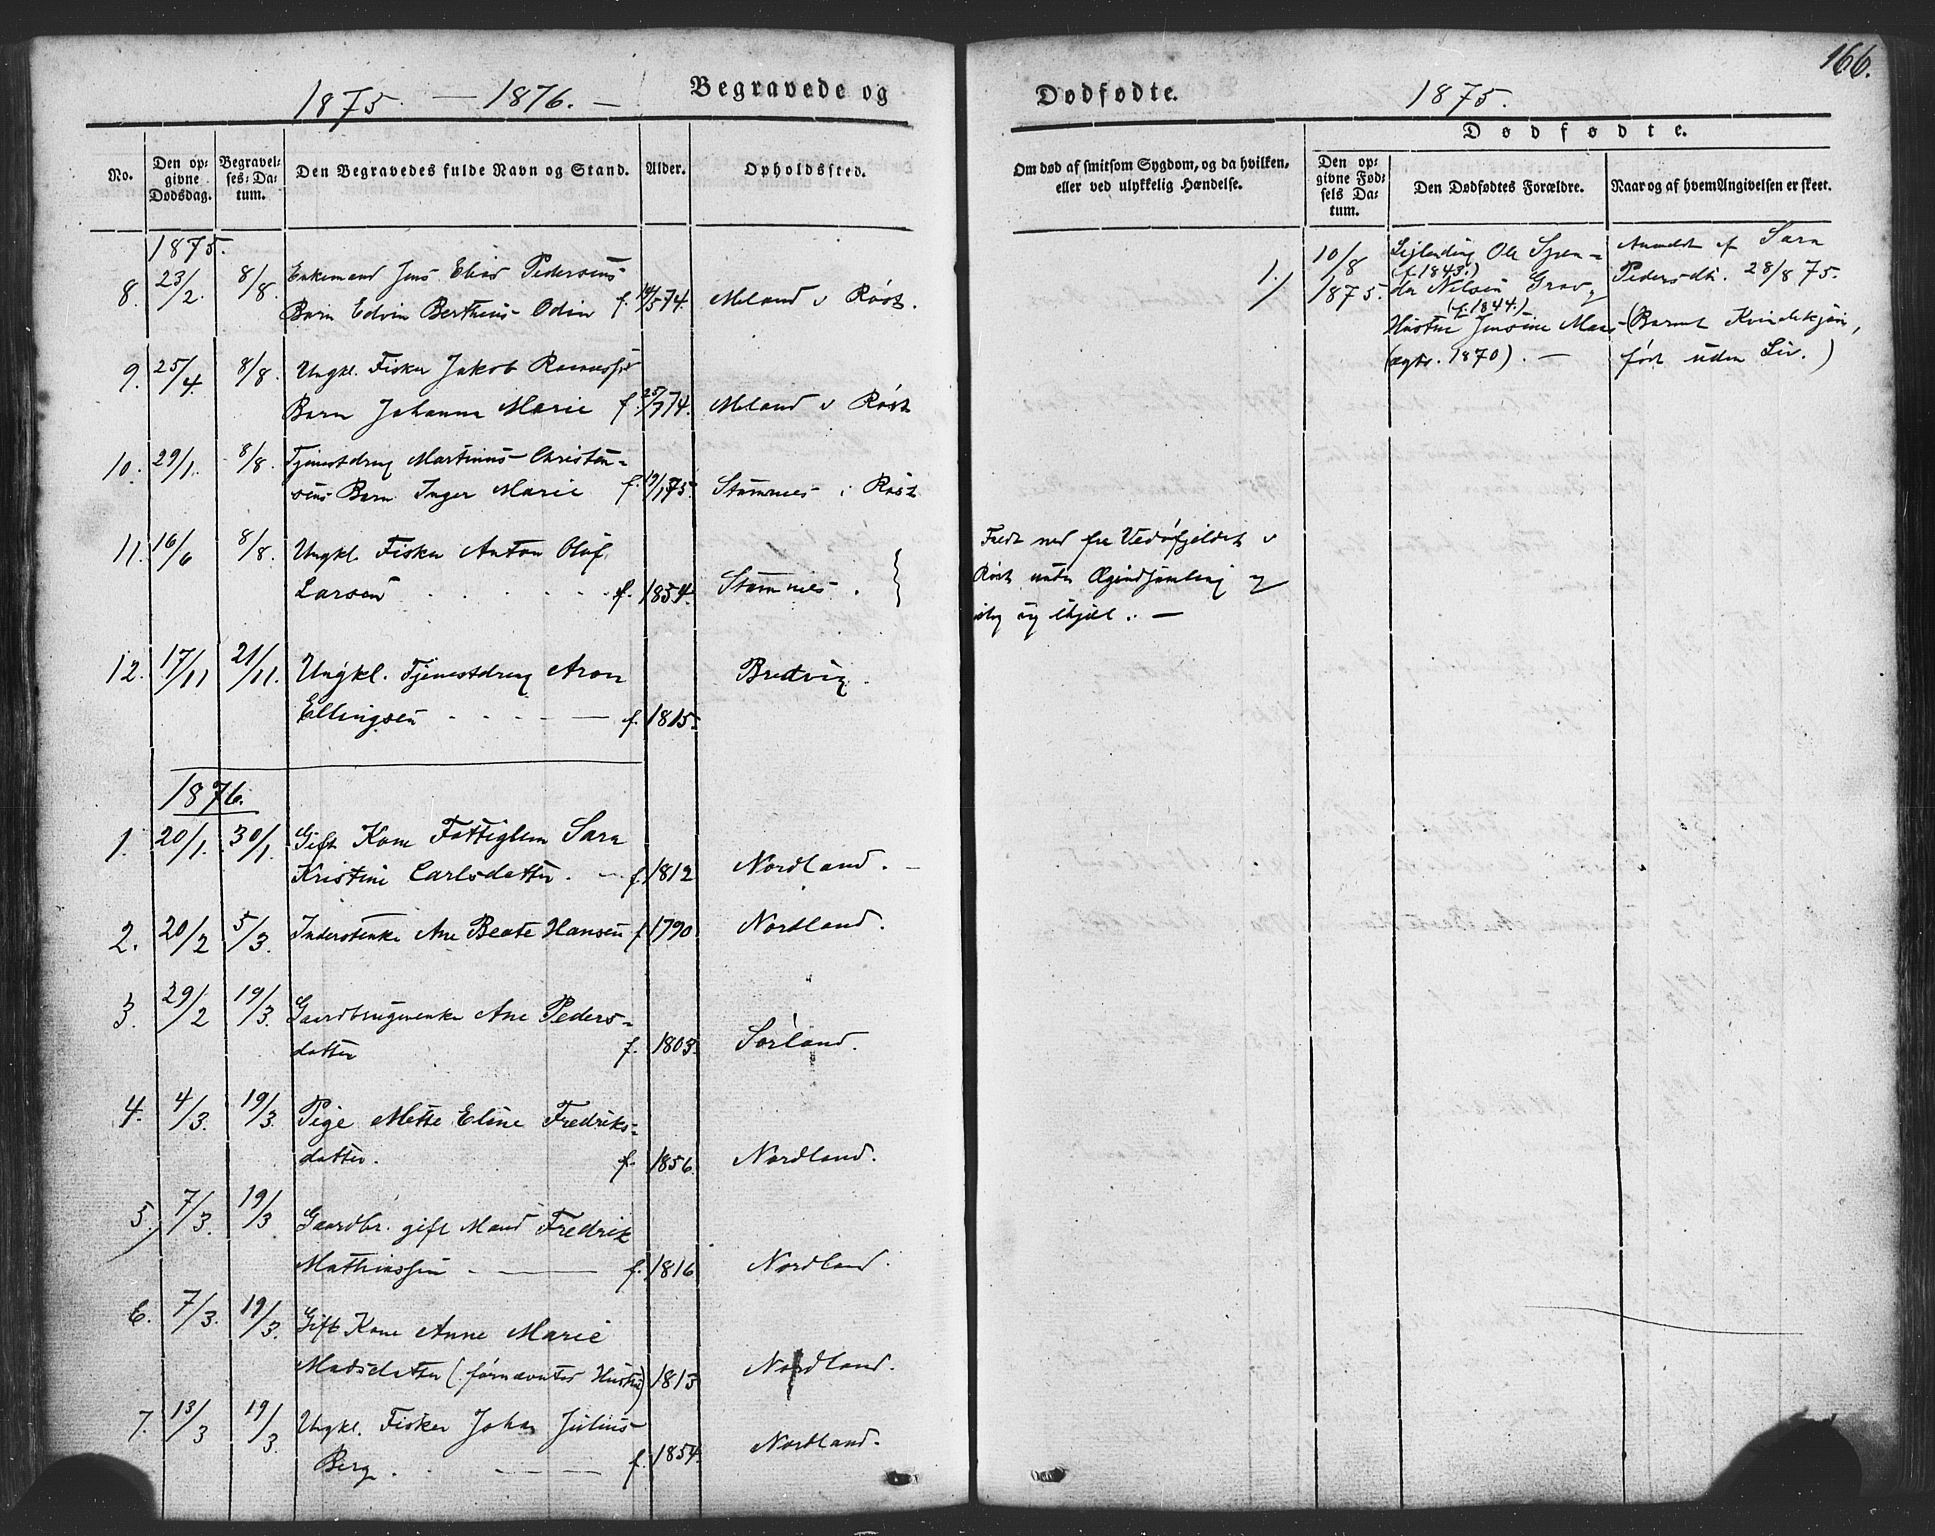 166.
1875. — 1876. —
Begravede og
Dødfødte.
1875.
No.
Den opgivne Dødsdag.
Begravelses-Datum.
Den Begravedes fulde Navn og Stand.
Alder.
Opholdssted.
Om død af smitsom Sygdom, og da hvilken,
eller ved ulykkelig Hændelse.
Dødfødte.
Den opgivne Fødsels Datum.
Den Dødfødtes Forældre.
Naar og af hvem Angivelsen er skeet.
1875.
8. 23/2. 8/8. Enkemand Jens Elias Pedersens
Barn Edvin Bertheus Odin f. /574. Meland v Røst.
9. 25/4. 8/8. Ungkl. Fisker Jakob
Barn Johanna Marie f. 25/774. Meland v Røst
10. 29/1. 8/8. Tjenestdreng Martinus Christen-
sens Barn Inger Marie f. 19/175. Stamnes i Røst
11. 16/6 8/8. Ungkl. Fisker Anton Oluf
Larsen . . . . . f. 1854. Stamnes .
Faldt ned fra Vedøfjeldet v
Røst under og
slog sig ihjel. —
12. 17/11 21/11. Ungkl. Tjenestdreng Aron
Ellingsen . . . — f. 1815. Bredvig.
1.) 10/8 1875.
Ole Spen-
(f. 1843.)
der Nilsen Grav og
(f. 1844.)
Hustru Jensine
(ægtv. 1870). —
Anmeldt af Sara
Pedersdtr. 28/8 75.
(Barnet Kvindekjøn,
født uden Liv.)
1876.
1. 20/1. 30/1. Gift Kone Fattiglem Sara
Kristine Carlsdatter. — f. 1812 Nordland. —
2. 20/2 5/3. Inderstenke Ane Beate Hansen f. 1790 Nordland.
3. 29/2 19/3. Gaardbrugerenke Ane Peders-
datter f. 1803. Sørland.
4. 4/3. 19/3. Pige Mette Eline Fredriks-
datter. f. 1856. Nordland.
5. 7/3. 19/3 Gaardbr. gift Mand Fredrik
Mathiassen — f. 1816 Nordland.
6. 7/3. 19/3. Gift Kone Anne Marie
Madsdatter (førnævntes Hustru) 1813 Nordland.
7. 13/3 19/3. Ungkl. Fisker Johan Julius
Berg . . — — f. 1854. Nordland.